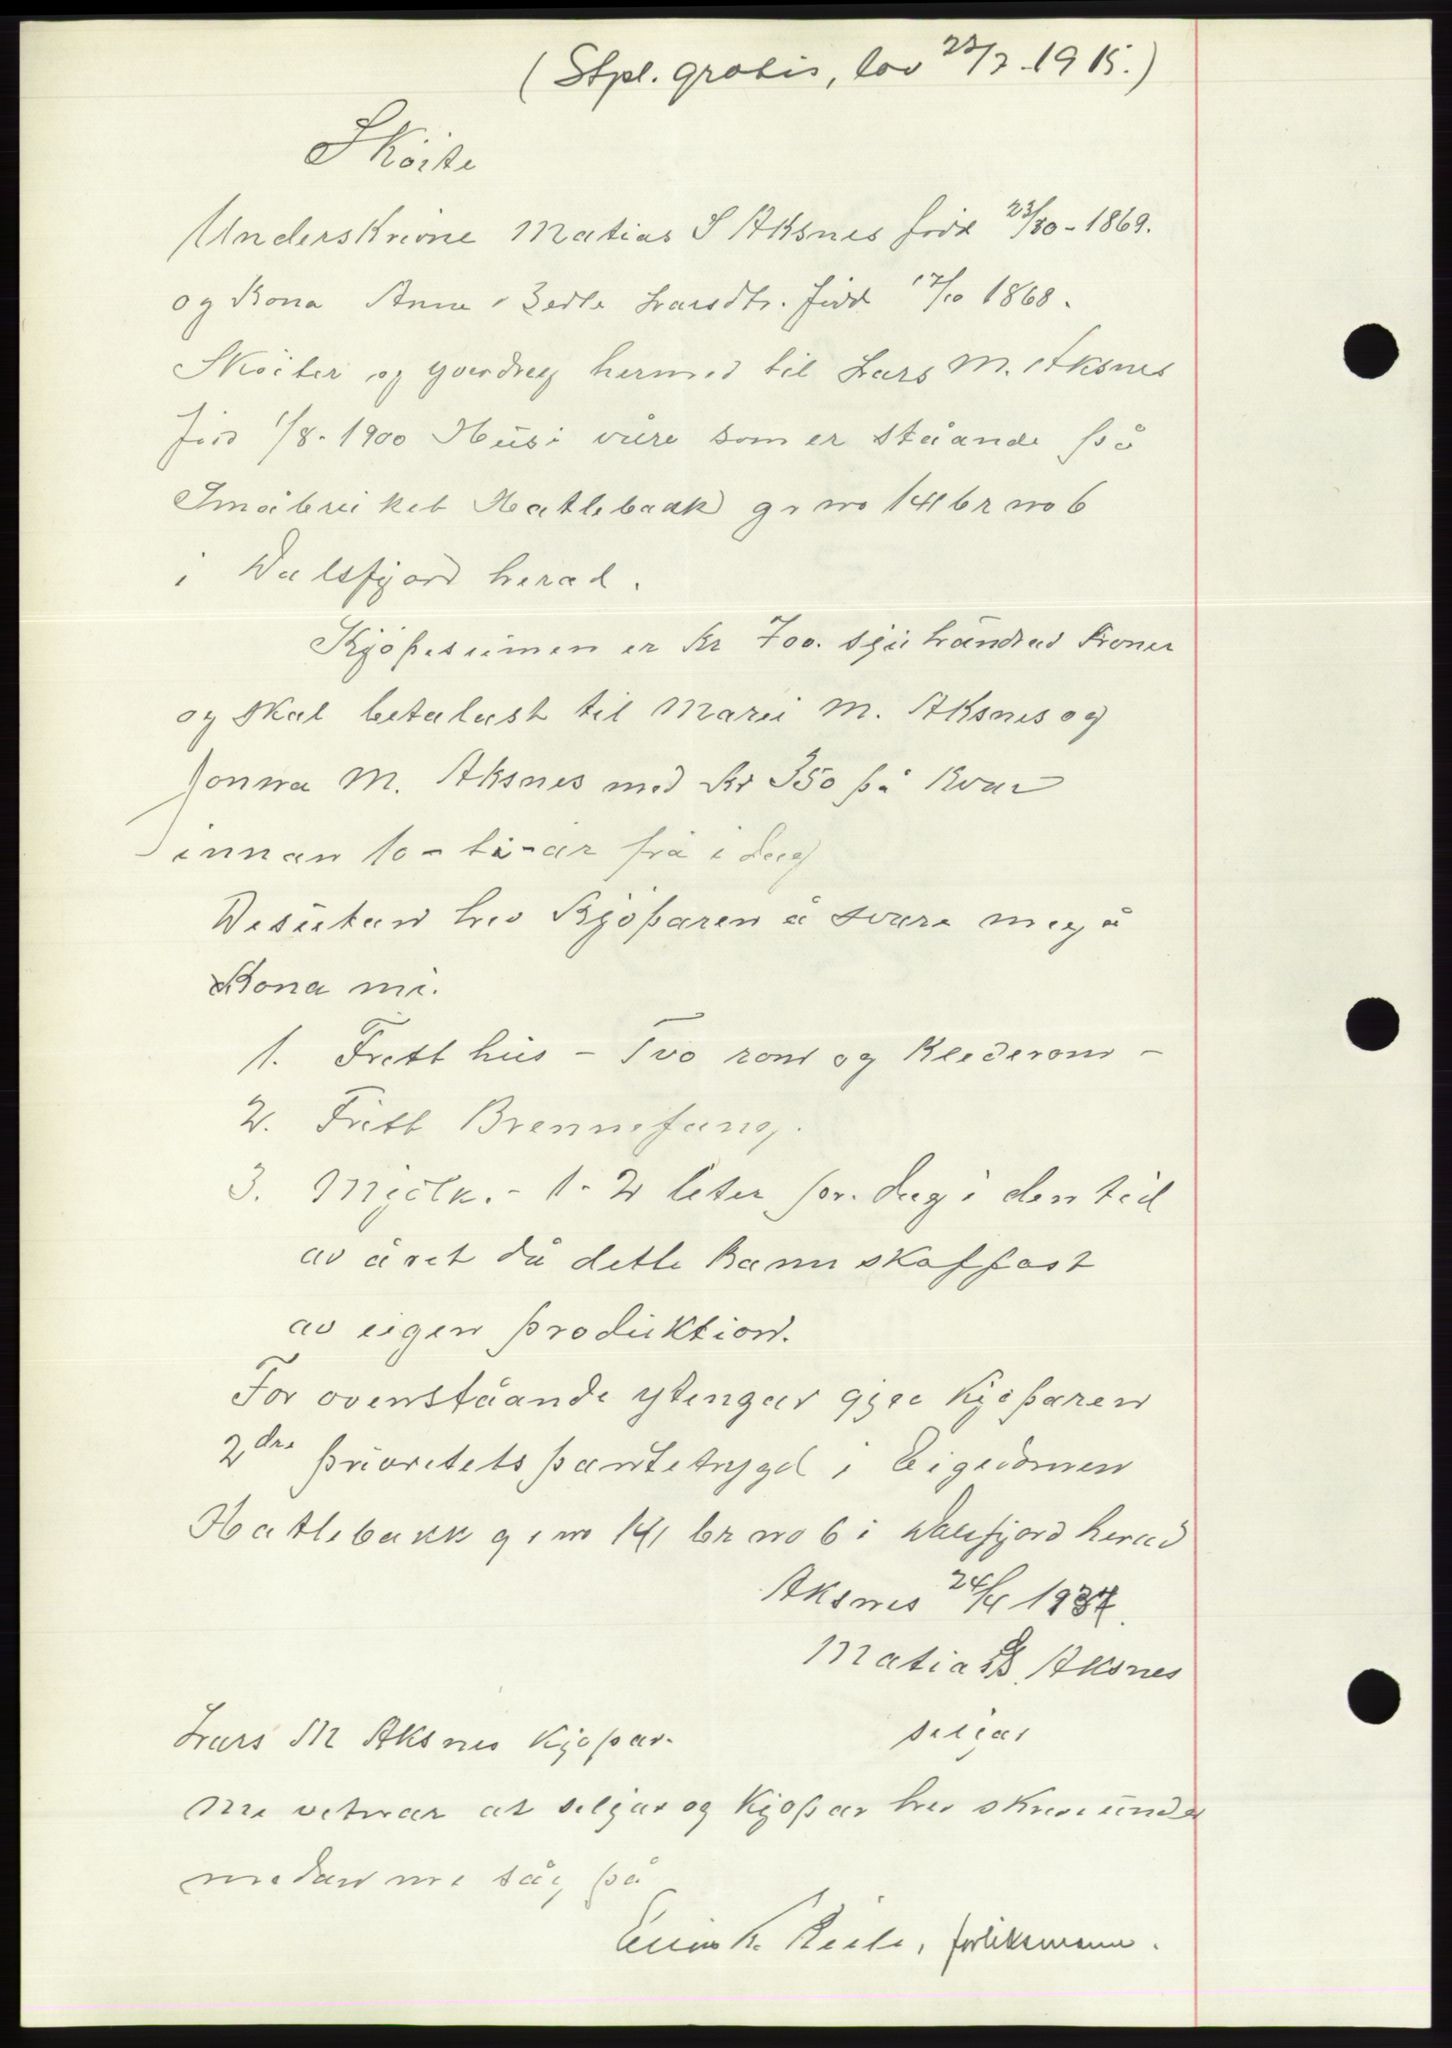 (Stpl. gratis, lov 23/7-1915.)
Skøite
Underskrivne Matias S Aksnes född 23/10-1869.
og Kona Anne Larsdtr. född 17/10 1868.
Skøiter og yverdreg hermed til Lars M. Aksnes
född 1/8-1900 Husi våre som er ståande på
Småbruket Hatlebakk gr no 141 br no 6
i Dalsfjord herad.
Kjøpesumen er kr 700. sju hundrad Kroner
og skal betalast til Marie M. Aksnes og
Jonna M. Aksnes med kr 350 på Kvar
innan 10-ti-år frå i dag
Desutan hev Kjøparen å svare meg å
Kona mi.
1. Fritt hus - Tvo rom og Klederom -
2. Fritt Brennefang.
3. Mjölk. - 1-2 liter for. dag i den tid
av året då dette kann skaffast
av eigen produktion.
For ovenståande ytingar gjev Kjøparen
2dre prioritets pantetrygd i Eigedomen
Hatlebakk gr no 141 br no 6 i Dalsfjord herad
Aksnes 24/4 1937.
Matias S. Aksnes
seljar
Lars M Aksnes Kjøpar.
Me vitnar at seljar og Kjøpar hev skreve under
medan me såg på
K. , forliksmann.